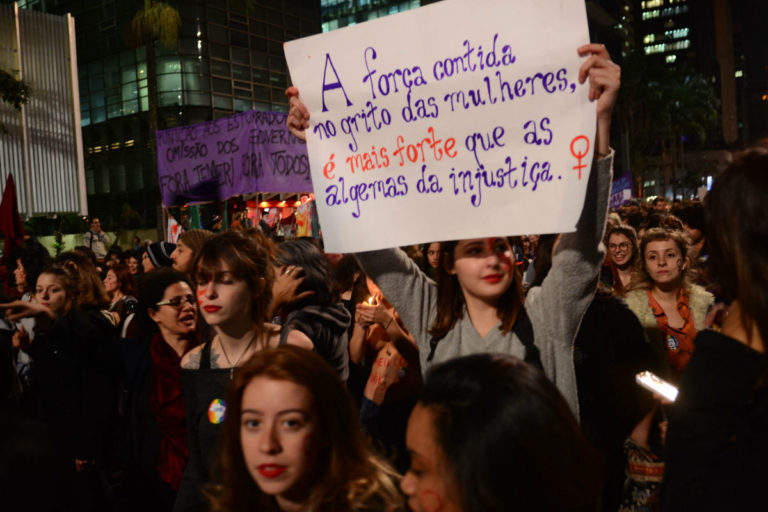 A força contida
no grito das mulheres,
é mais forte que as
algemas da injustiça.
OMISSÃO DOS GOVERNO
FORA TEMER! FORA TODOS